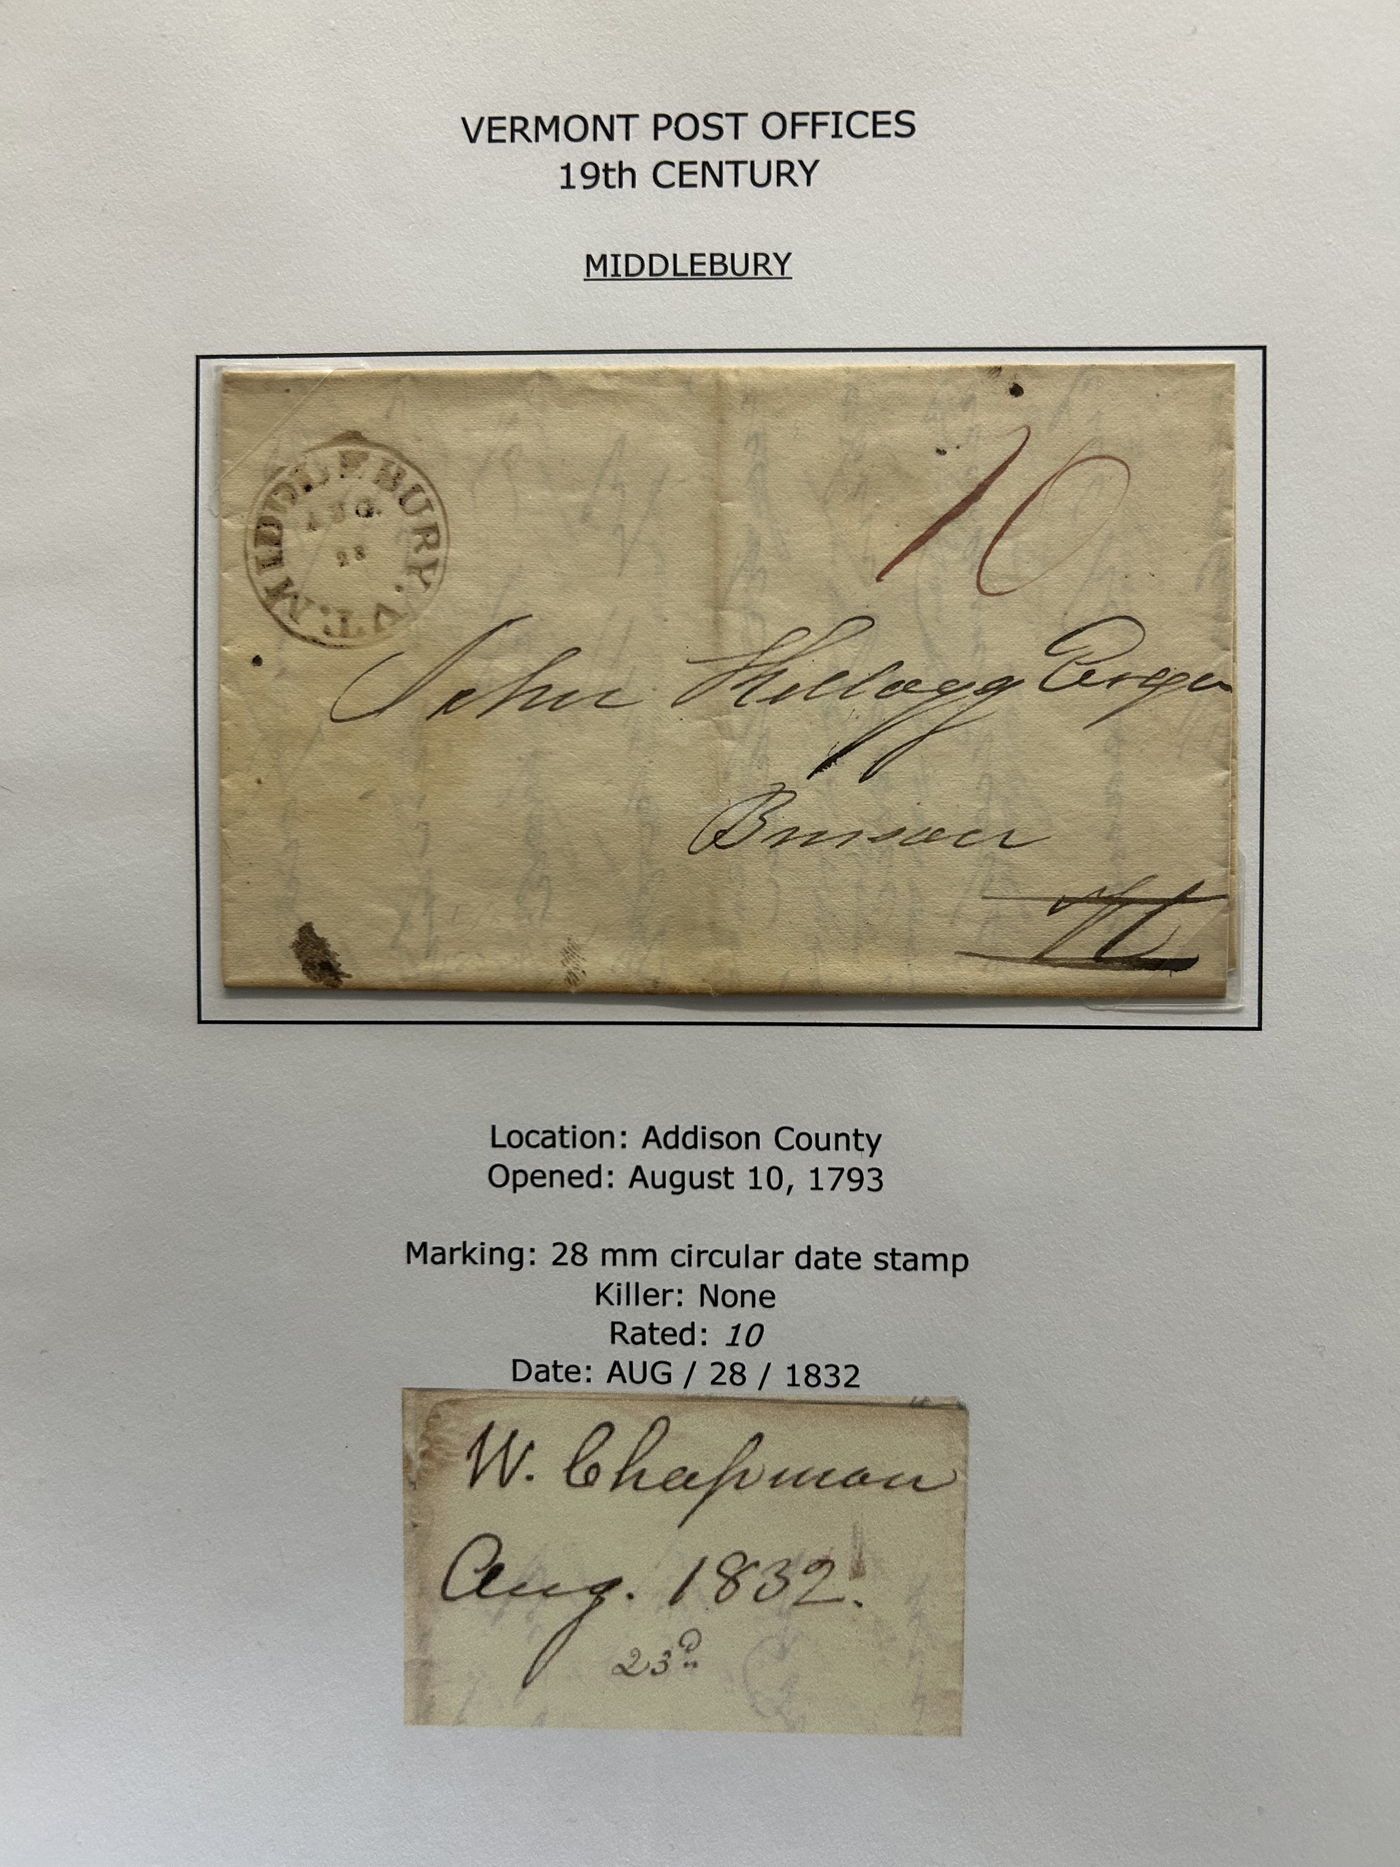 VERMONT POST OFFICES
19th CENTURY
MIDDLEBURY
MIDDLEBURY. VT.
AUG.
28
10
John Kellogg Esqr
Benson
Vt
Location: Addison County
Opened: August 10, 1793
Marking: 28 mm circular date stamp
Killer: None
Rated: 10
Date: AUG / 28 / 1832
W. Chapman
Aug. 1832.
23d